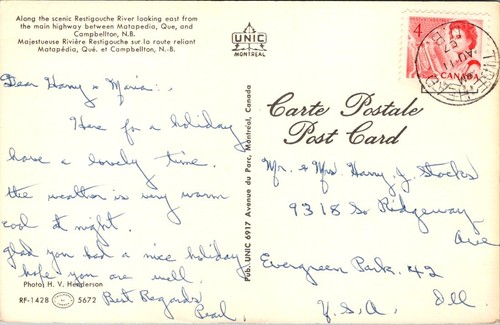 Along the scenic Restigouche River looking east from
the main highway between Matapedia, Que, and
Campbellton, N.B.
Majestueuse Rivière Restigouche sur la route reliant
Matapédia, Qué. et Campbellton, N.-B.
UNIC
MONTREAL
4
CANADA
AU 11
67
N.B.
Dear Harry & Maria:
Here for a holiday
have a lovely time.
the weather is very warm
cool at night.
glad you had a nice holiday
hope you are well.
Best Regards
Pearl.
Photo: H. V. Henderson
RF-1428 5672
Pub. UNIC 6917 Avenue du Parc, Montreal, Canada
Carte Postale
Post Card
Mr. & Mrs Harry. J. Stocks
9318 So Ridgeway
Ave
Evergreen Park. 42
Ill
U.S.A.